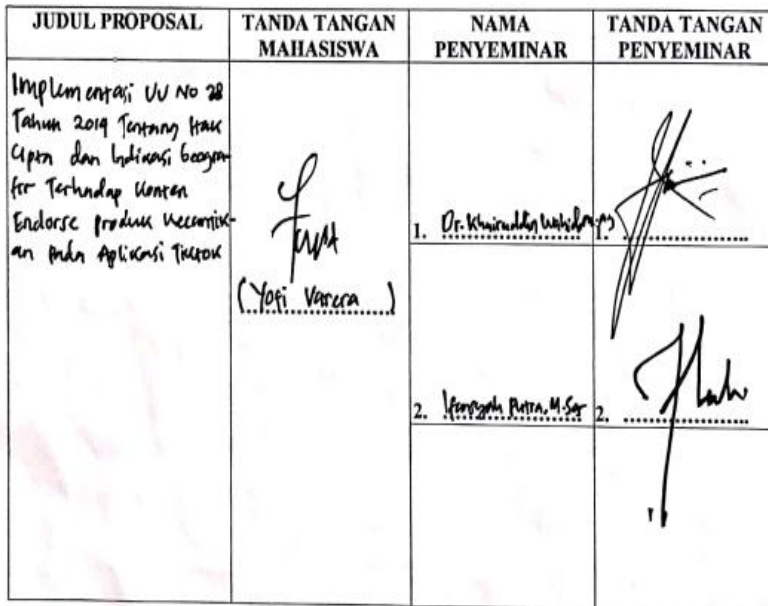 JUDUL PROPOSAL
TANDA TANGAN
MAHASISWA
NAMA
PENYEMINAR
TANDA TANGAN
PENYEMINAR
Implementasi UU No 28
Tahun 2014 Tentang Hak
Cipta dan Indikasi Geogra-
fis Terhadap Konten
Endorse produk kecantik-
an Pada Aplikasi TikTok
(Yogi Varera)
1. Dr. Khairuddin
1.
2. Putra, M.Sos
2.